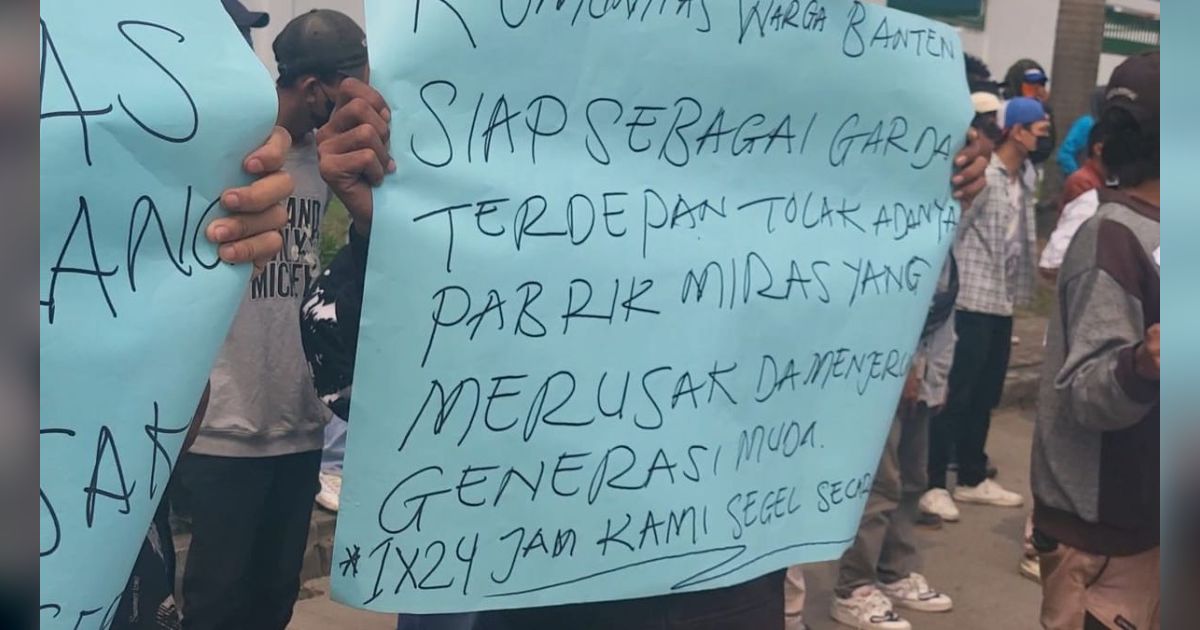 AS
ANG
SAK
KOMUNITAS WARGA BANTEN
SIAP SEBAGAI GARDA
TERDEPAN TOLAK ADANYA
PABRIK MIRAS YANG
MERUSAK DA MENJERU
GENERASI MUDA.
*1X24 JAM KAMI SEGEL SECAR
AND
MICE